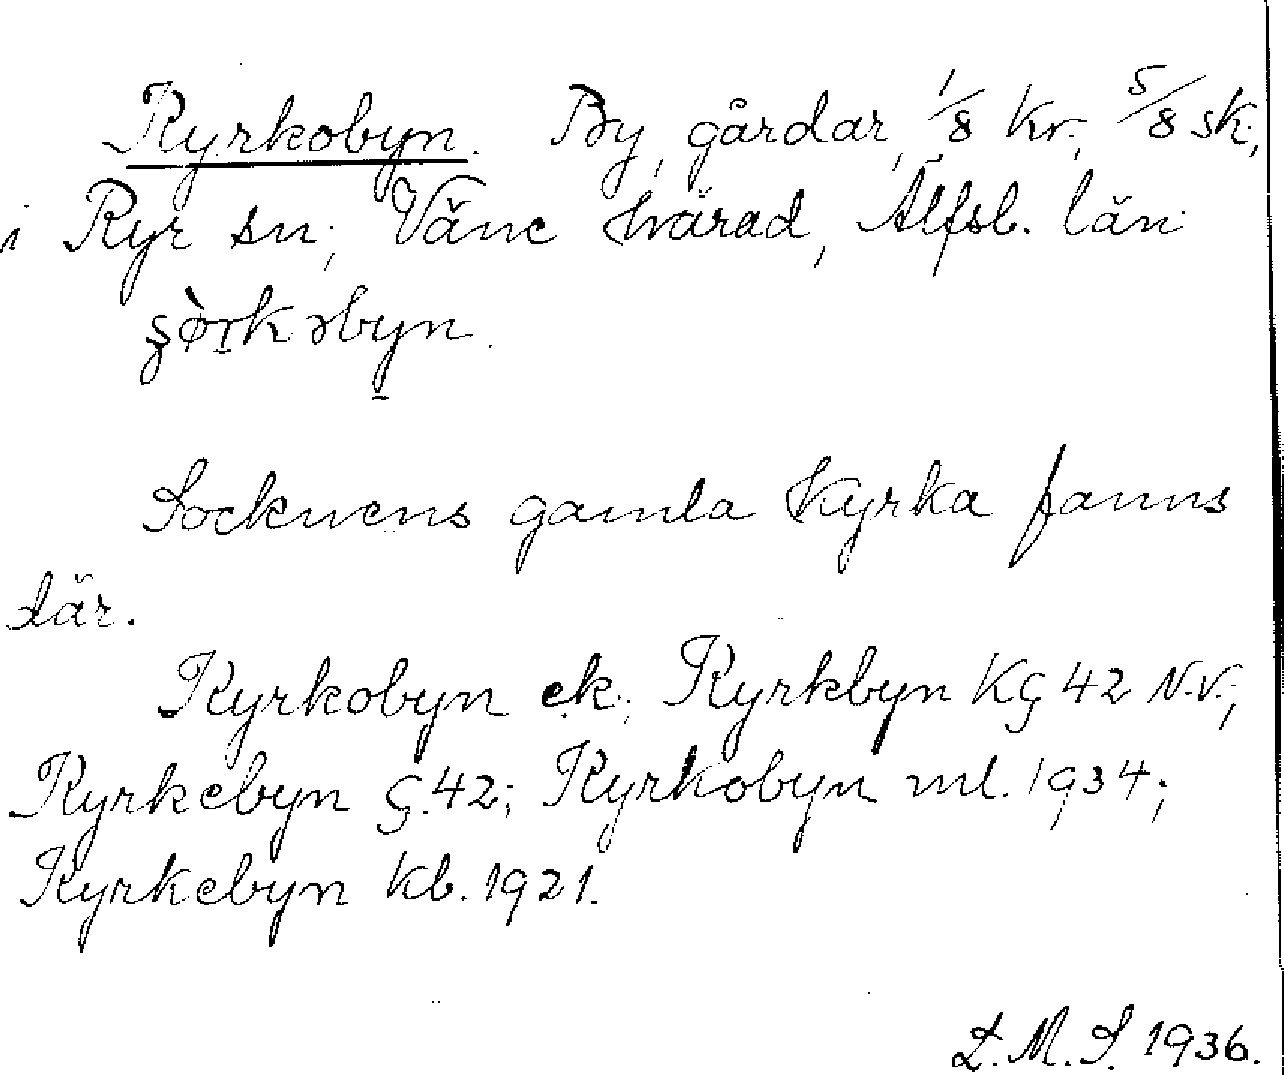 Kyrkobyn. By, gårdar, 1/8 kr., 5/8 sk.,
i Ryr sn, Väne härad, Älfsb. län.
Socknens gamla kyrka fanns
där.
Kyrkobyn ek.; Kyrkbyn KG 42 N.V.;
Kyrkebyn G. 42; Kyrkobyn ml. 1934;
Kyrkebyn kb. 1921.
L. M. S. 1936.